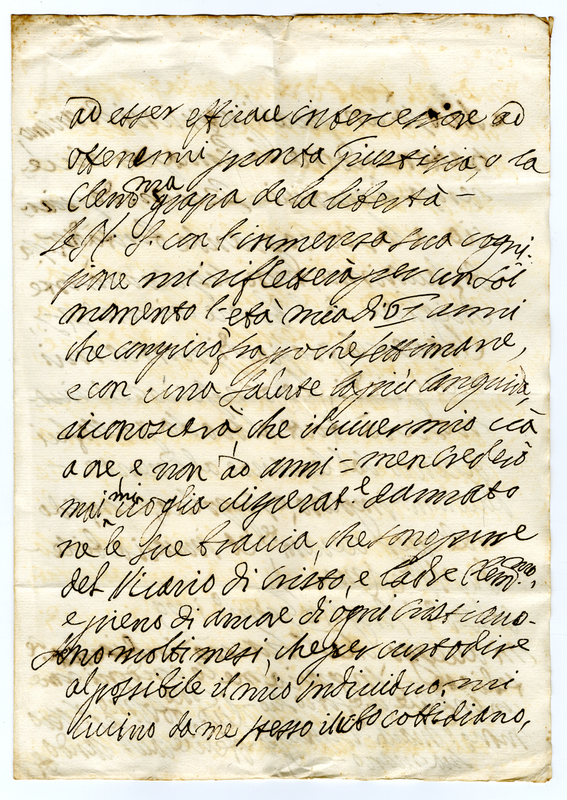 ad esser efficace intercessore ad
ottenermi pronta Giustizia, o la
Clemma grazia de la libertà –
Se V. S. con l'immensa sua cogni-
zione mi rifletterà per un sol
momento l'età mia di anni
che compirò fra poche settimane,
e con una salute la più languida,
riconoscerà, che il viver mio è à
ore, e non ad anni = men crederò
mai mi voglia disperate dannato
ne le sue braccia, che son pure
del Vicario di Cristo, e Padre Clemmo,
e pieno di amore di ogni Cristiano –
Sono molti mesi, che per custodire
al possibile il mio individuo, mi
cucino da me stesso il cibo cottidiano,